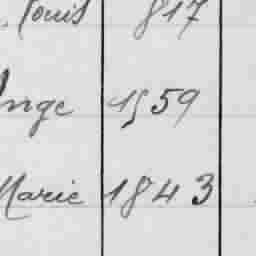 Louis 817
Ange 1559
Marie 1843